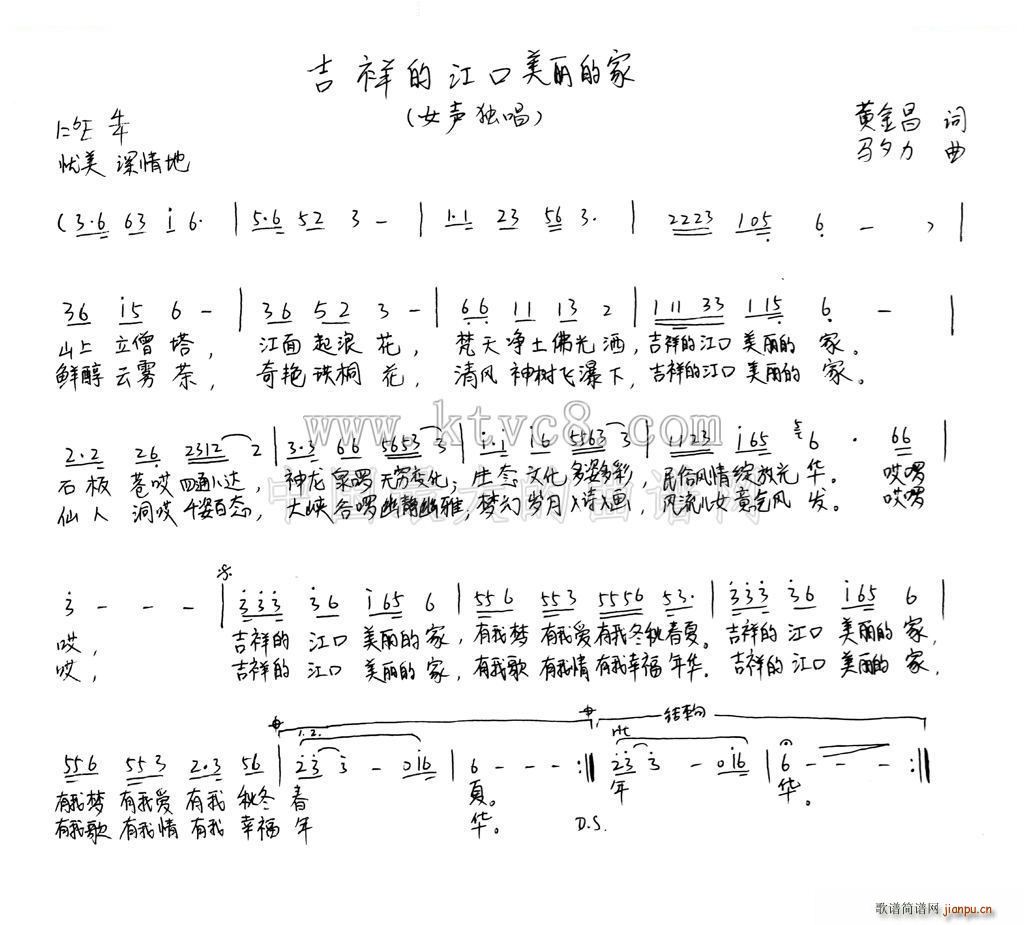 吉祥的江口美丽的家
(女声独唱)
1=♭E 4/4
黄金昌 词
优美 深情地
马夕力 曲
(3·6 63 i 6· | 5·6 52 3 - | 1·1 23 56 3· | 2223 105 6 - - ) |
36 i5 6 - | 36 52 3 - | 66 11 13 2 | 111 33 115 6 - |
山上 立僧 塔, 江面 起浪 花, 梵天 净土佛光 洒, 吉祥的江口 美丽的 家。
鲜醇 云雾 茶, 奇艳 珙桐 花, 清风 神树飞瀑下, 吉祥的江口 美丽的 家。
www.ktvc8.com
2·2 26 2312 2 | 3·3 66 5653 3 | i·i i6 5563 3 | 1123 i65 6 · 66
石板 苍哎 四通八达, 神龙泉啰 无穷变化; 生态 文化 多姿多彩, 民俗风情绽放光 华。 哎啰
仙人 洞哎 千姿百态, 大峡谷啰幽静幽雅; 梦幻 岁月 诗画, 风流儿女竟气风 发。 哎啰
3 - - - | 333 36 i65 6 | 556 553 5556 53· | 333 36 i65 6 |
哎, 吉祥的 江口 美丽的家, 有我梦 有我爱有我冬秋春夏。 吉祥的 江口 美丽的 家,
哎, 吉祥的 江口 美丽的家, 有我歌 有我情 有我幸福 年华。 吉祥的 江口 美丽的 家,
结束句
1. 2. rit
556 553 2·3 56 | 23 3 - 016 | 6 - - - :|| 23 3 - 016 | 6 - - - :||
有我梦 有我爱 有我 秋冬 春 夏。 年 华。
有我歌 有我情 有我 幸福 年 华。 D.S.
歌谱简谱网
jianpu.cn